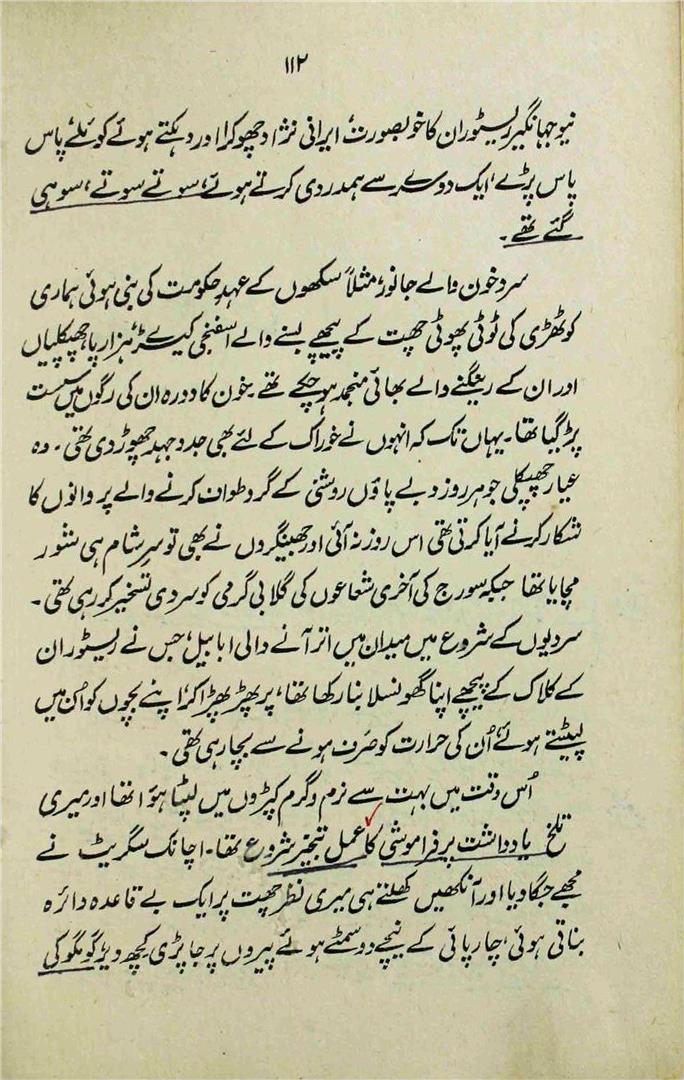 ۱۱۲
نیو جہانگیر ریسٹوران کا خوبصورت، ایرانی نژاد چھوکرا اور دہکتے ہوئے کوئلے پاس
پاس پڑے، ایک دوسرے سے ہمدردی کرتے ہوئے، سوتے سوتے، سو ہی
گئے تھے۔
سرد خون والے جانور، مثلاً سکھوں کے عہدِ حکومت کی بنی ہوئی ہماری
کوٹھڑی کی ٹوٹی پھوٹی چھت کے پیچھے بسنے والے اسفنجی کیڑے، ہزار پا، چھپکلیاں
اور ان کے رینگنے والے بھائی منجمد ہو چکے تھے۔ خون کا دورہ ان کی رگوں میں سست
پڑ گیا تھا۔ یہاں تک کہ انہوں نے خوراک کے لئے بھی جدوجہد چھوڑ دی تھی۔ وہ
عیار چھپکلی جو ہر روز دبے پاؤں روشنی کے گرد طواف کرنے والے پروانوں کا
شکار کرنے آیا کرتی تھی اس روز نہ آئی اور جھینگروں نے بھی تو سرِ شام ہی شور
مچایا تھا جبکہ سورج کی آخری شعاعوں کی گلابی گرمی کو سردی تسخیر کر رہی تھی۔
سردیوں کے شروع میں میدان میں اتر آنے والی ابابیل، جس نے ریسٹوران
کے کلاک کے پیچھے اپنا گھونسلا بنا رکھا تھا، پر پھڑپھڑا کر، اپنے بچوں کو اُن میں
لپیٹتے ہوئے، اُن کی حرارت کو صَرف ہونے سے بچا رہی تھی۔
اُس وقت میں بہت سے نرم و گرم کپڑوں میں لپٹا ہؤا تھا اور میری
تلخ یادداشت پر فراموشی کا عملِ تبخیر شروع تھا۔ اچانک سگریٹ نے
مجھے جگا دیا اور آنکھیں کھلتے ہی میری نظر چھت پر ایک بے قاعدہ دائرہ
بناتی ہوئی، چارپائی کے نیچے دو سمٹے ہوئے پیروں پر جا پڑی کچھ دیر گومگو کی